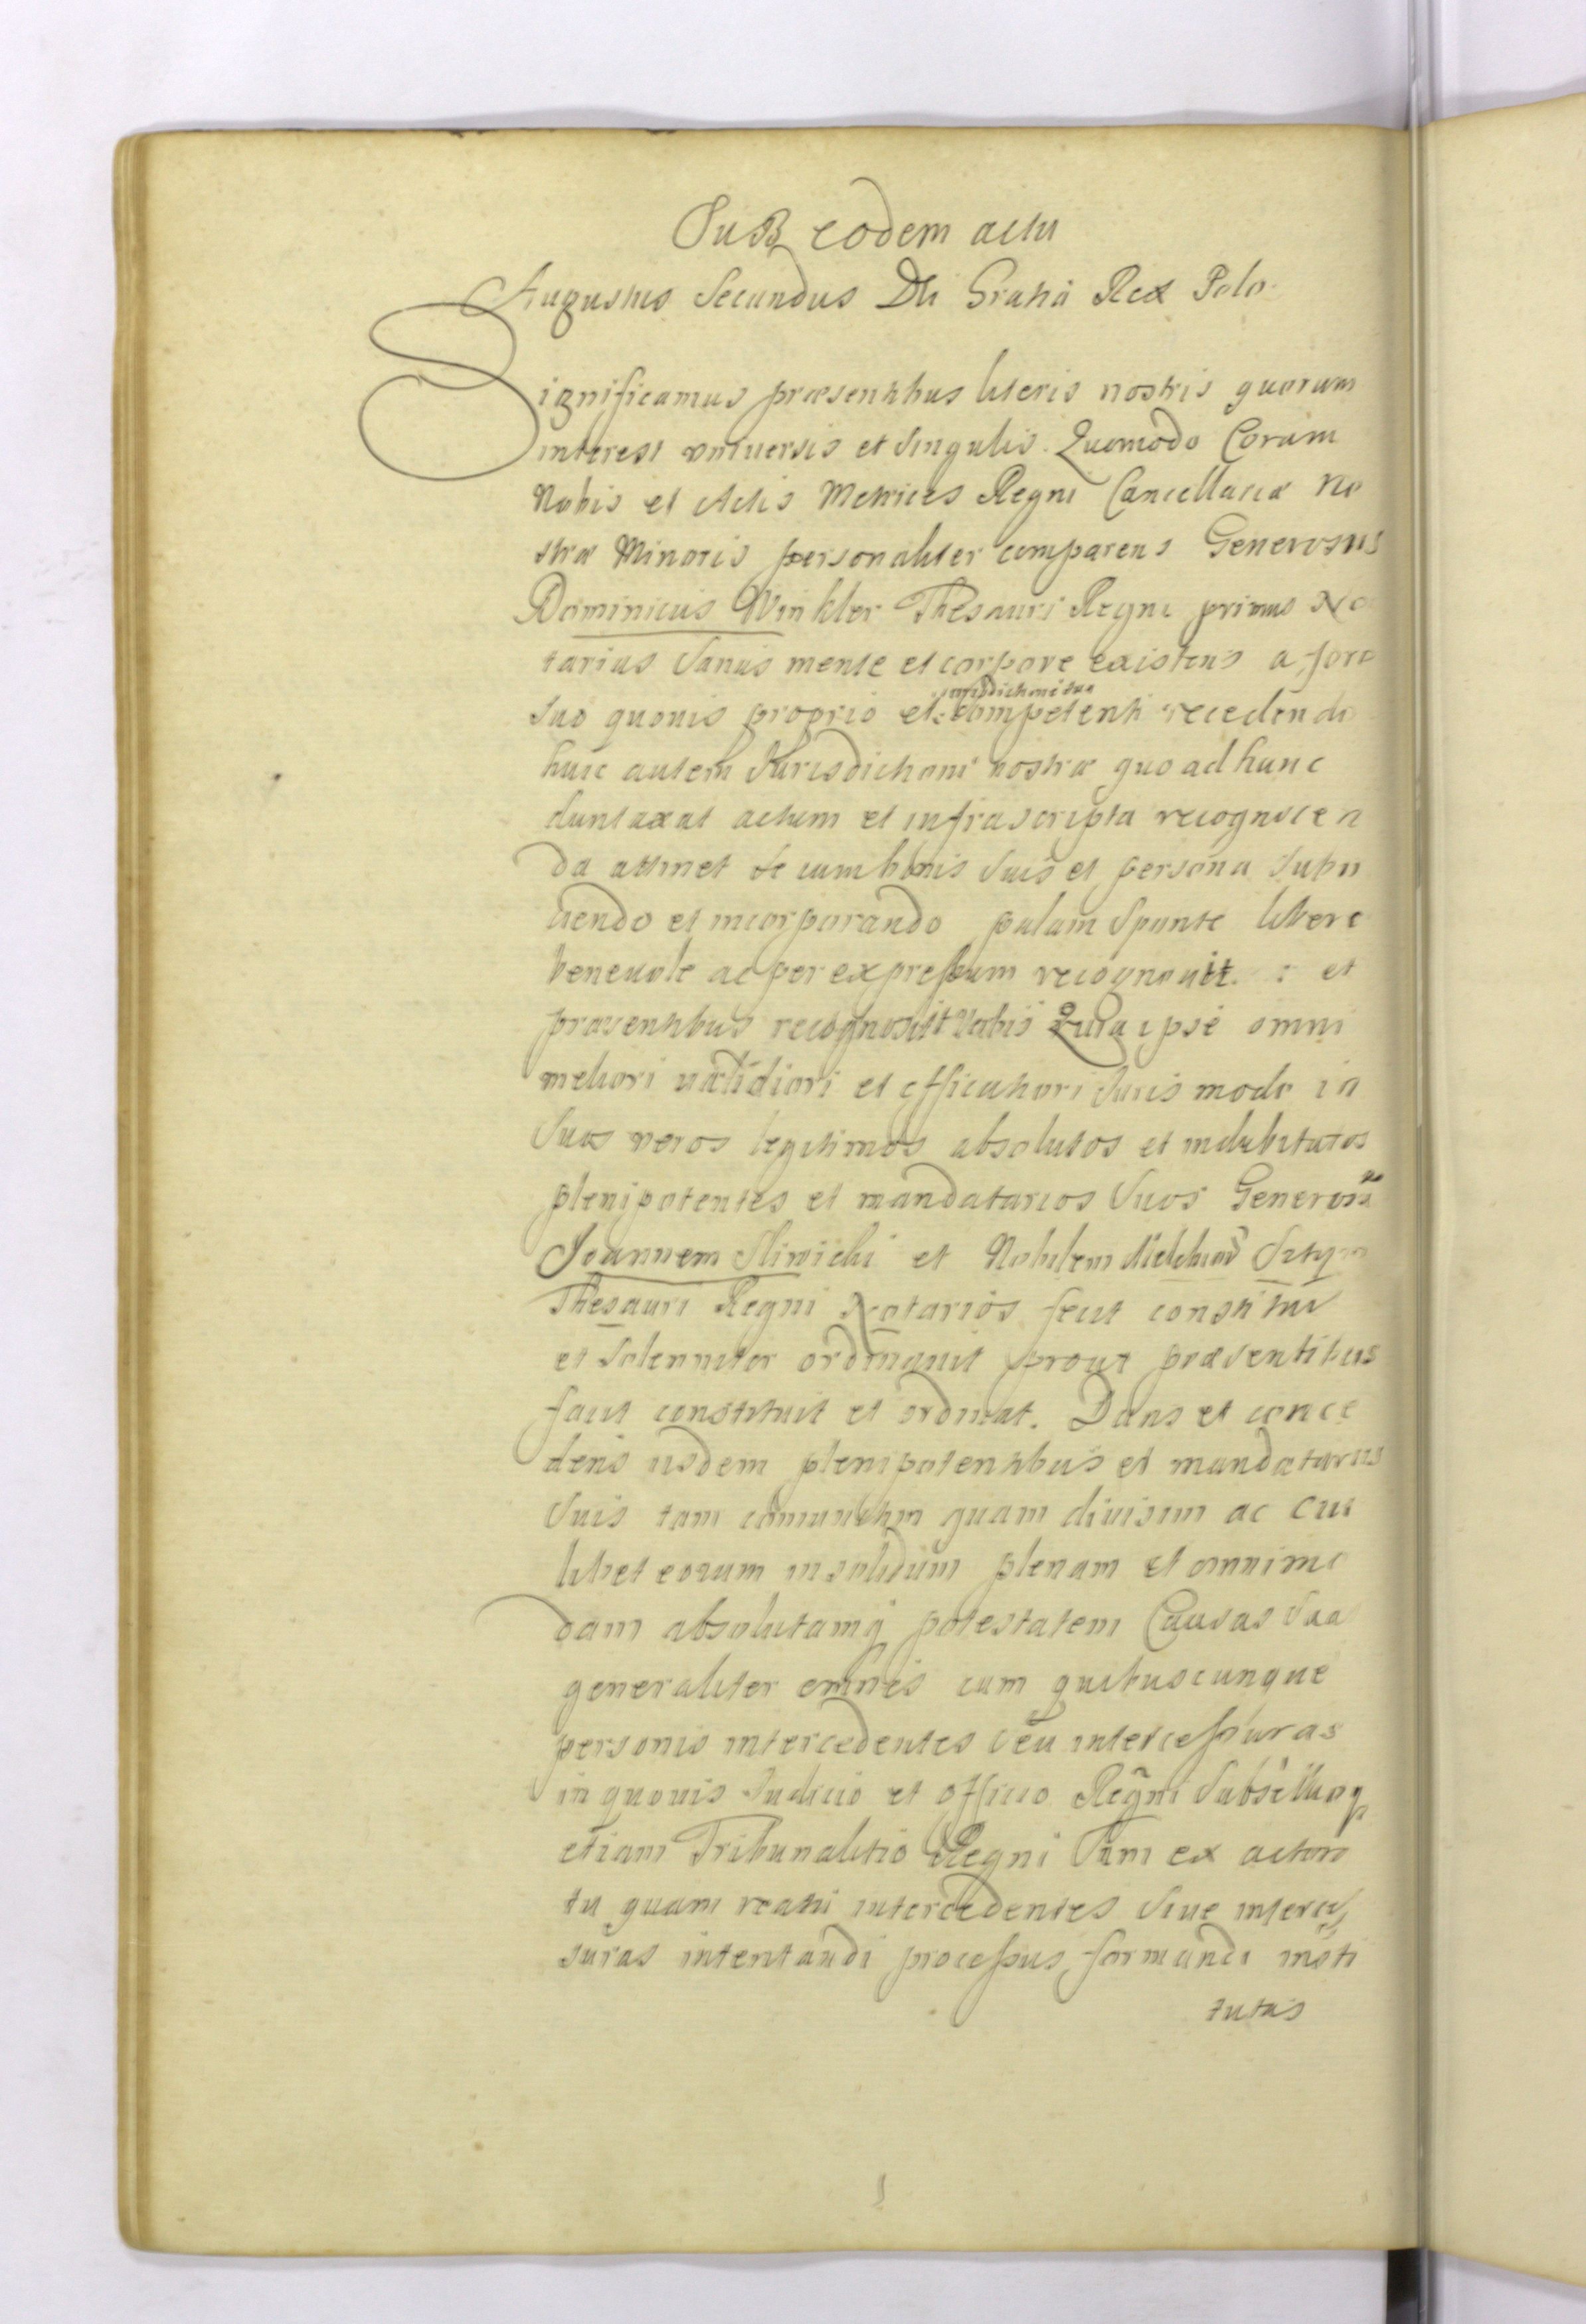 Sub eodem actu
Augustus Secundus Dei Gratia Rex Polo
Significamus præsentibus literis nostris quorum
interest vniuersis et Singulis. Quomodo Coram
Nobis et Actis Metrices Regni Cancellariæ no
stræ Minoris personaliter comparens Generosus
Dominicus Winkler Thesauri Regni primus No
tarius Sanus mente et corpore existens a foro
jurisdictione sua
suo quouis proprio et competenti recedendo
huic autem Jurisdictioni nostræ quo ad hunc
duntaxat actum et infrascripta recognoscen
da attinet se cum bonis suis et persona subii
ciendo et incorporando palam Sponte libere
beneuole ac per expressum recognouit : et
præsentibus recognoscit Nobis Quia ipse omni
meliori validiori et efficatiori Juris modo in
Suos veros legitimos absolutos et indubitatos
plenipotentes et mandatarios Suos Generosu
Joannem Sliwicki et Nobilem
Thesauri Regni Notarios fecit constituit
et Solenniter ordinauit prout præsentibus
facit constituit et ordinat. Dans et conce
dens iisdem plenipotentibus et mandatariis
Suis tam comunitim quam diuisim ac cui
libet eorum insolidum plenam et omnimo
dam absolutamq potestatem Causas sua
generaliter omnes cum quibuscunque
personis intercedentes seu intercessuras
in quouis Judicio et officio Regni Subsellioq
etiam Tribunalitio Regni tam ex actora
tu quam reatu intercedentes siue interces
suras intentandi processus formandi insti
tutas